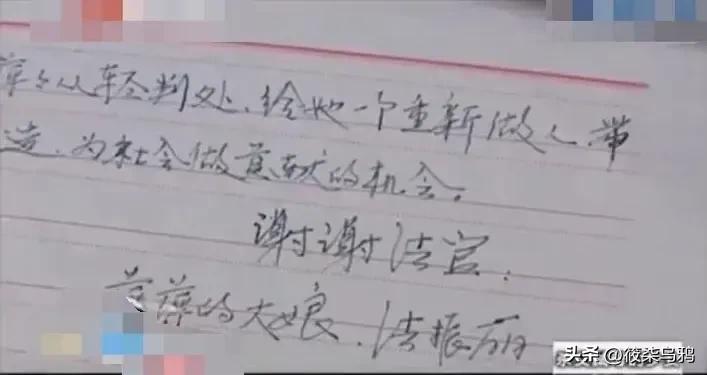 从轻判处、给她一个重新做人、带
造、为社会做贡献的机会。
谢谢法官。
萍的大娘、洪振丽
头条 @筱柒乌鸦